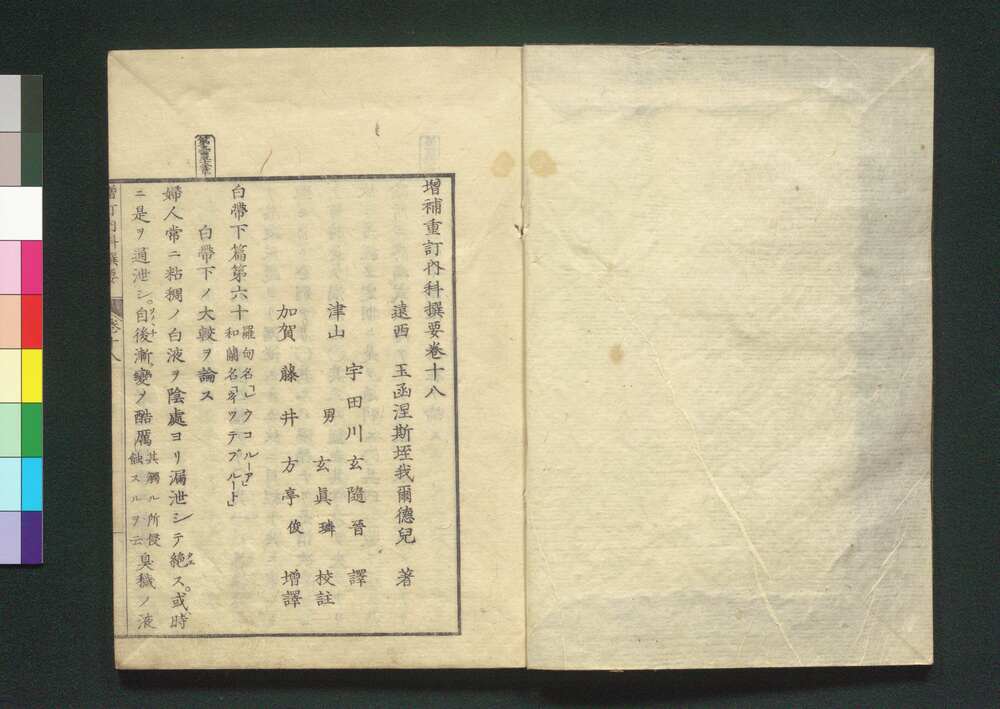 增補重訂內科撰要卷十八
遠西 玉函涅斯垤我爾德兒 著
津山 宇田川玄隨晉 譯
男 玄眞璘 校註
加賀 藤井方亭俊 增譯
白帶下篇第六十 羅甸名「レウコルーア」
和蘭名「ギッテブルート」
白帶下ノ大較ヲ論ス
婦人常ニ粘稠ノ白液ヲ陰處ヨリ漏泄シテ絶タエス。或時
ニ是ヲ通泄シ。自後漸ク變シ酷厲 其觸ル所侵
蝕スルヲ云 臭穢ノ液
增訂內科撰要 卷十八